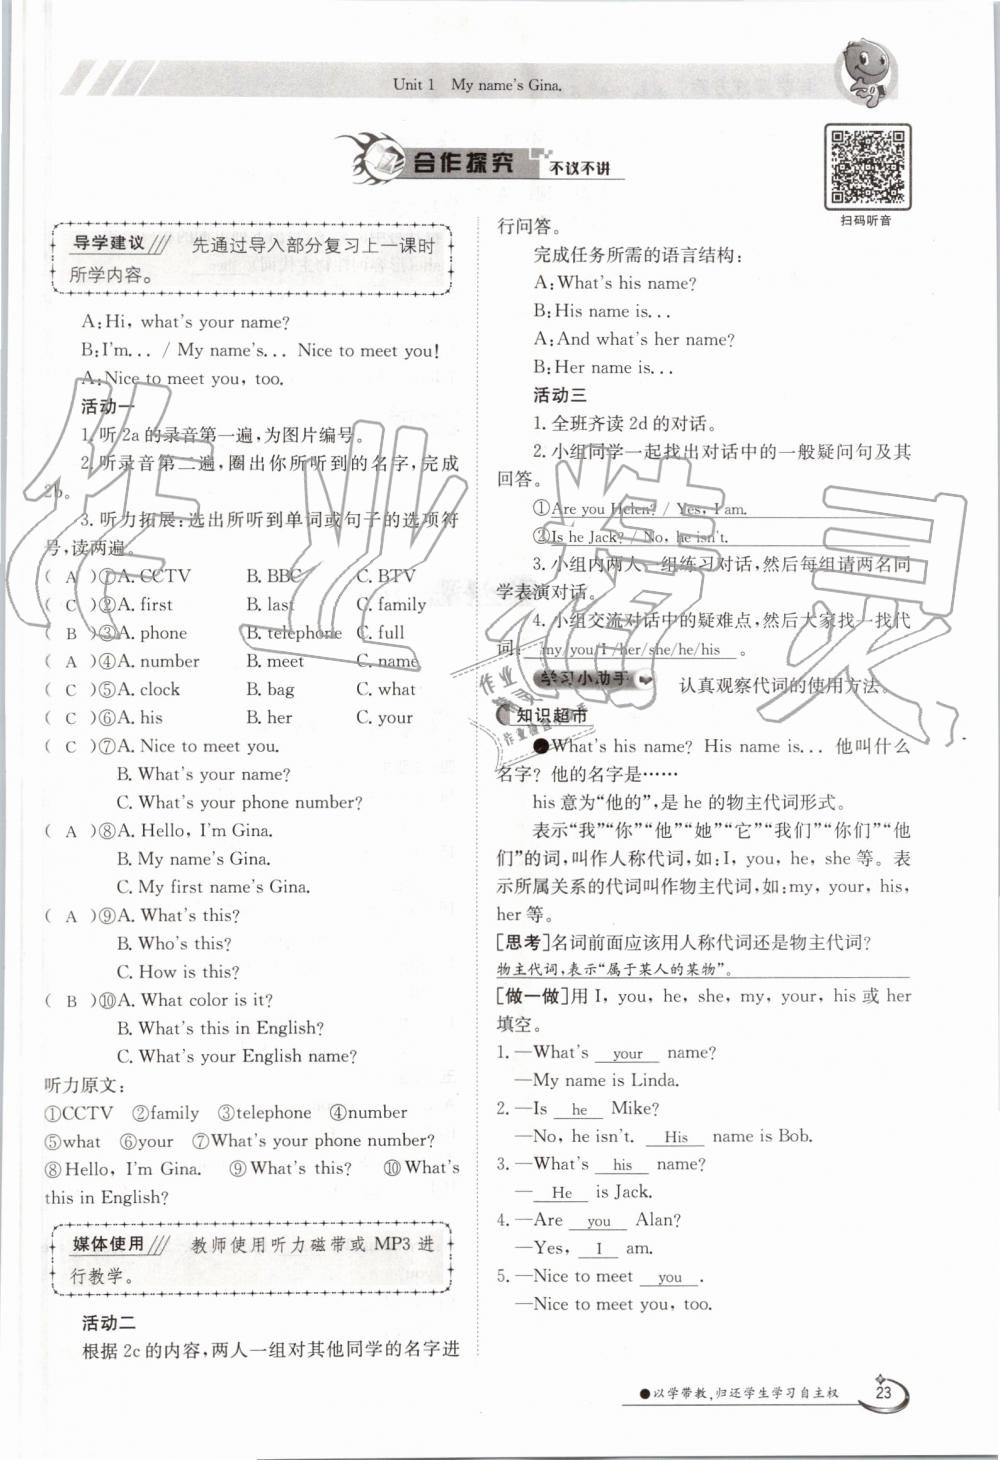 Unit 1 My name's Gina.
合作探究 不议不讲
扫码听音
导学建议 先通过导入部分复习上一课时
所学内容。
A:Hi, what's your name?
B:I'm... / My name's... Nice to meet you!
A:Nice to meet you, too.
活动一
1. 听2a的录音第一遍,为图片编号。
2. 听录音第二遍,圈出你所听到的名字,完成
2b。
3. 听力拓展:选出所听到单词或句子的选项符
号,读两遍。
( A )①A. CCTV B. BBC C. BTV
( C )②A. first B. last C. family
( B )③A. phone B. telephone C. full
( A )④A. number B. meet C. name
( C )⑤A. clock B. bag C. what
( C )⑥A. his B. her C. your
( C )⑦A. Nice to meet you.
B. What's your name?
C. What's your phone number?
( A )⑧A. Hello, I'm Gina.
B. My name's Gina.
C. My first name's Gina.
( A )⑨A. What's this?
B. Who's this?
C. How is this?
( B )⑩A. What color is it?
B. What's this in English?
C. What's your English name?
听力原文:
①CCTV ②family ③telephone ④number
⑤what ⑥your ⑦What's your phone number?
⑧Hello, I'm Gina. ⑨What's this? ⑩What's
this in English?
媒体使用 教师使用听力磁带或 MP3 进
行教学。
活动二
根据2c的内容,两人一组对其他同学的名字进
行问答。
完成任务所需的语言结构:
A:What's his name?
B:His name is...
A:And what's her name?
B:Her name is...
活动三
1. 全班齐读2d的对话。
2. 小组同学一起找出对话中的一般疑问句及其
回答。
①Are you Helen? / Yes, I am.
②Is he Jack? / No, he isn't.
3. 小组内两人一组练习对话,然后每组请两名同
学表演对话。
4. 小组交流对话中的疑难点,然后大家找一找代
词: my/you/I/her/she/he/his 。
学习小助手 认真观察代词的使用方法。
知识超市
●What's his name? His name is... 他叫什么
名字? 他的名字是……
his 意为“他的”,是 he 的物主代词形式。
表示“我”“你”“他”“她”“它”“我们”“你们”“他
们”的词,叫作人称代词,如:I, you, he, she 等。表
示所属关系的代词叫作物主代词,如:my, your, his,
her 等。
[思考]名词前面应该用人称代词还是物主代词?
物主代词,表示“属于某人的某物”。
[做一做]用 I, you, he, she, my, your, his 或 her
填空。
1. —What's your name?
—My name is Linda.
2. —Is he Mike?
—No, he isn't. His name is Bob.
3. —What's his name?
— He is Jack.
4. —Are you Alan?
—Yes, I am.
5. —Nice to meet you .
—Nice to meet you, too.
●以学带教,归还学生学习自主权
23
作业精灵